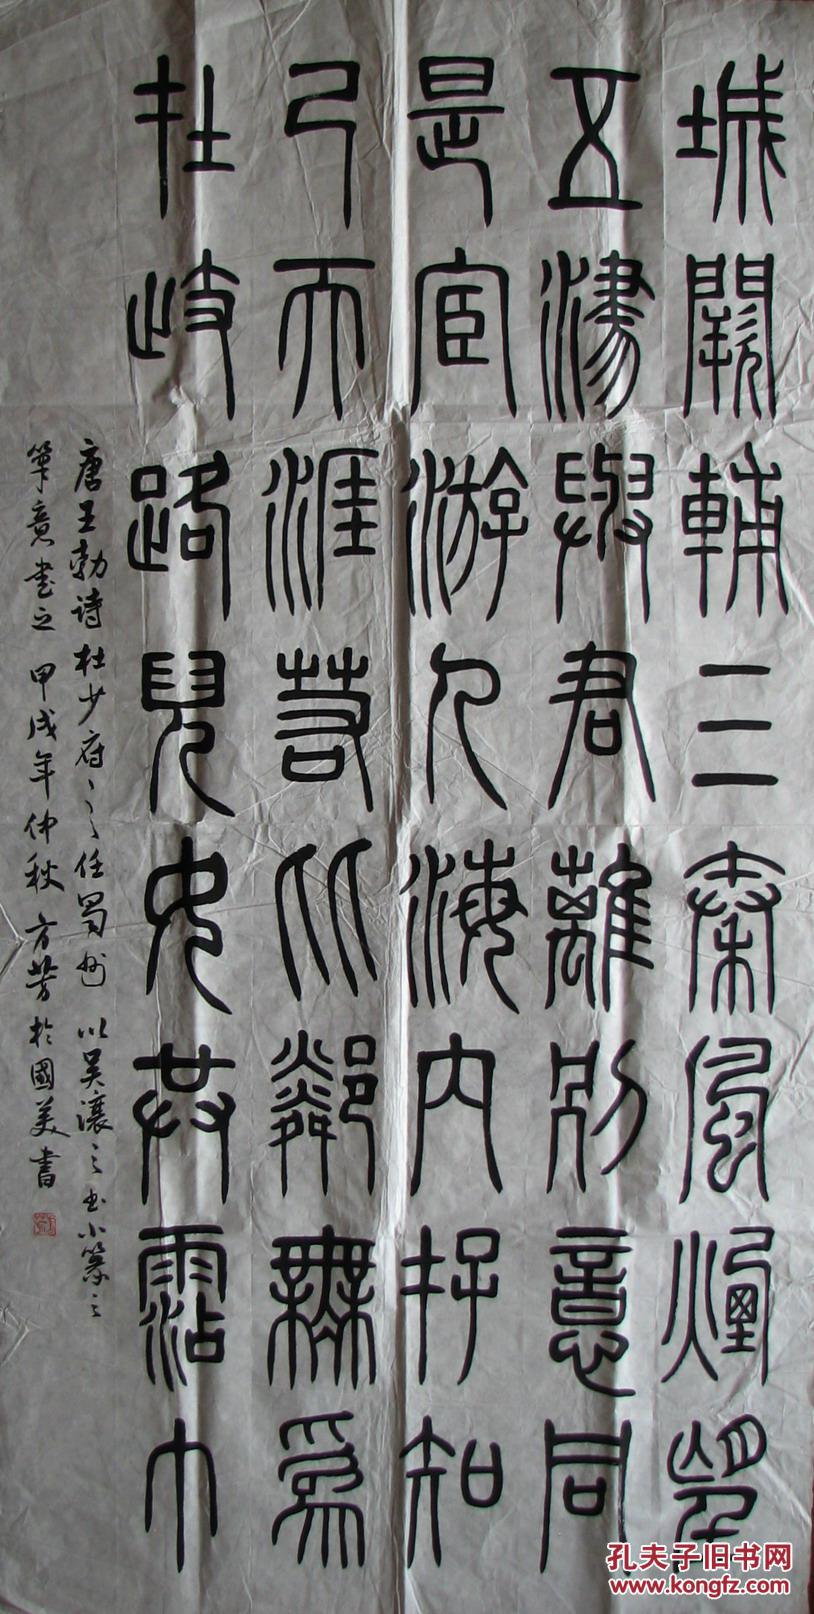 城闕輔三秦風煙望
五津與君離別意同
是宦游人海内存知
己天涯若比鄰無爲
在歧路兒女共霑巾
唐王勃诗杜少府之任蜀州 以吴讓之书小篆之
筆意書之 甲戌年仲秋方芳於國美書
孔夫子旧书网
www.kongfz.com